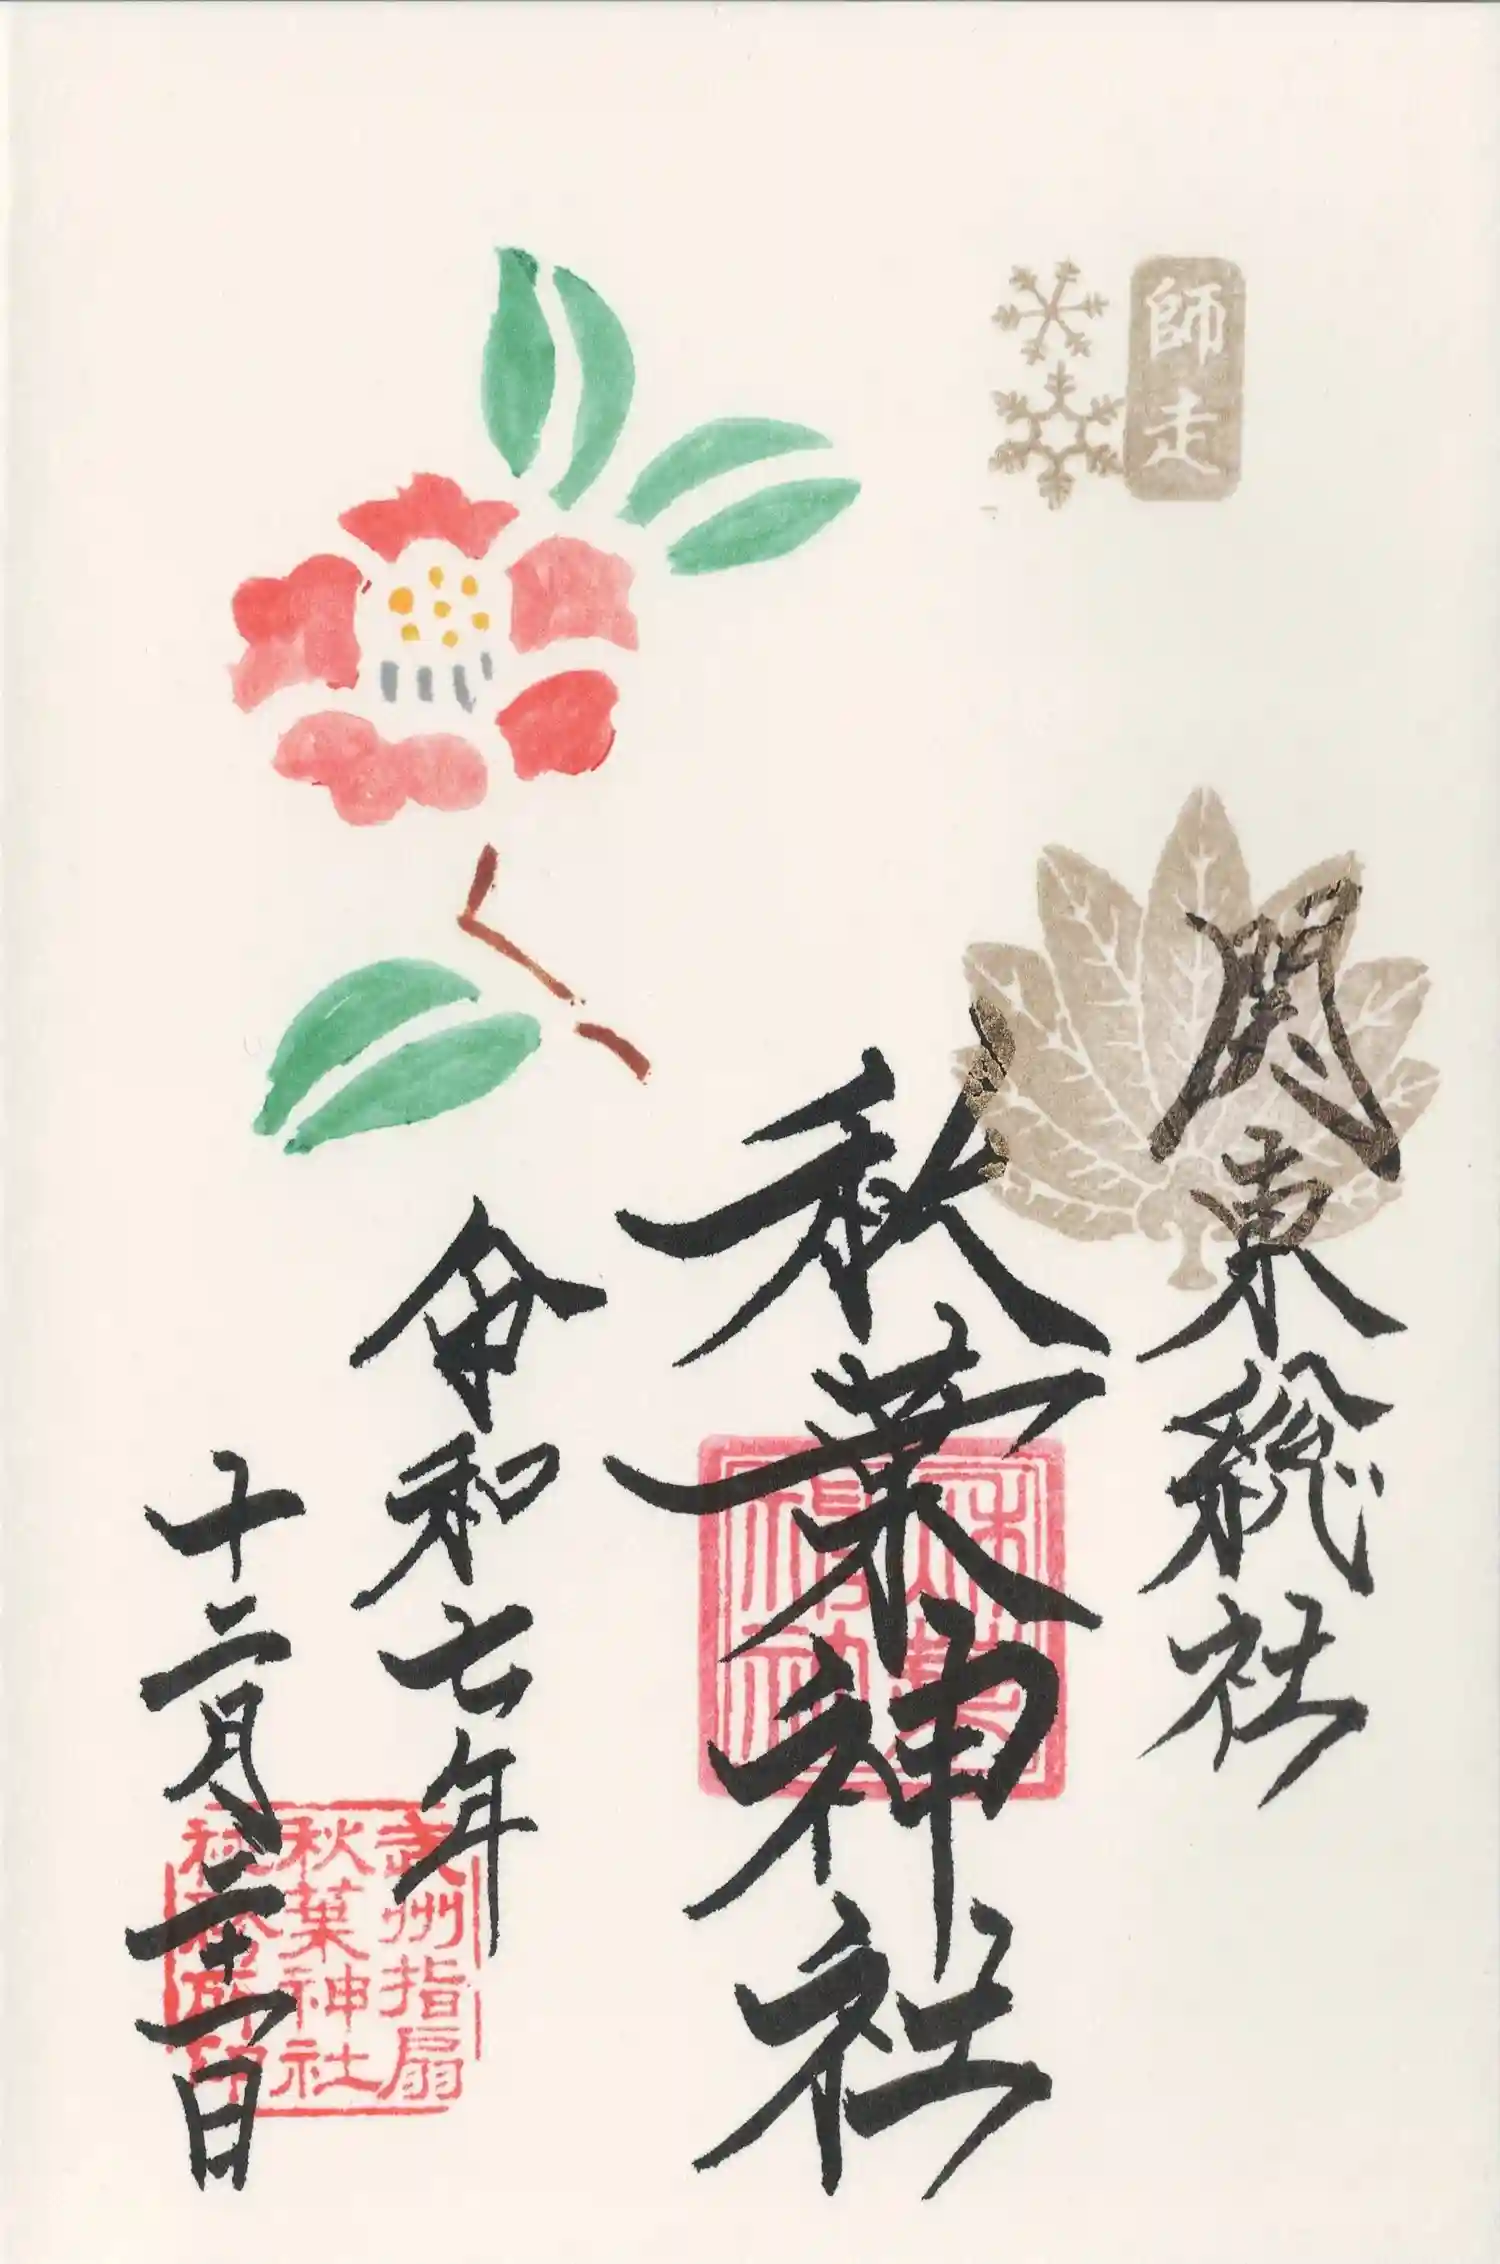 師走
関東総社
秋葉神社
秋葉神社
令和七年
十二月二十一日
武州指扇
秋葉神社
社務所印